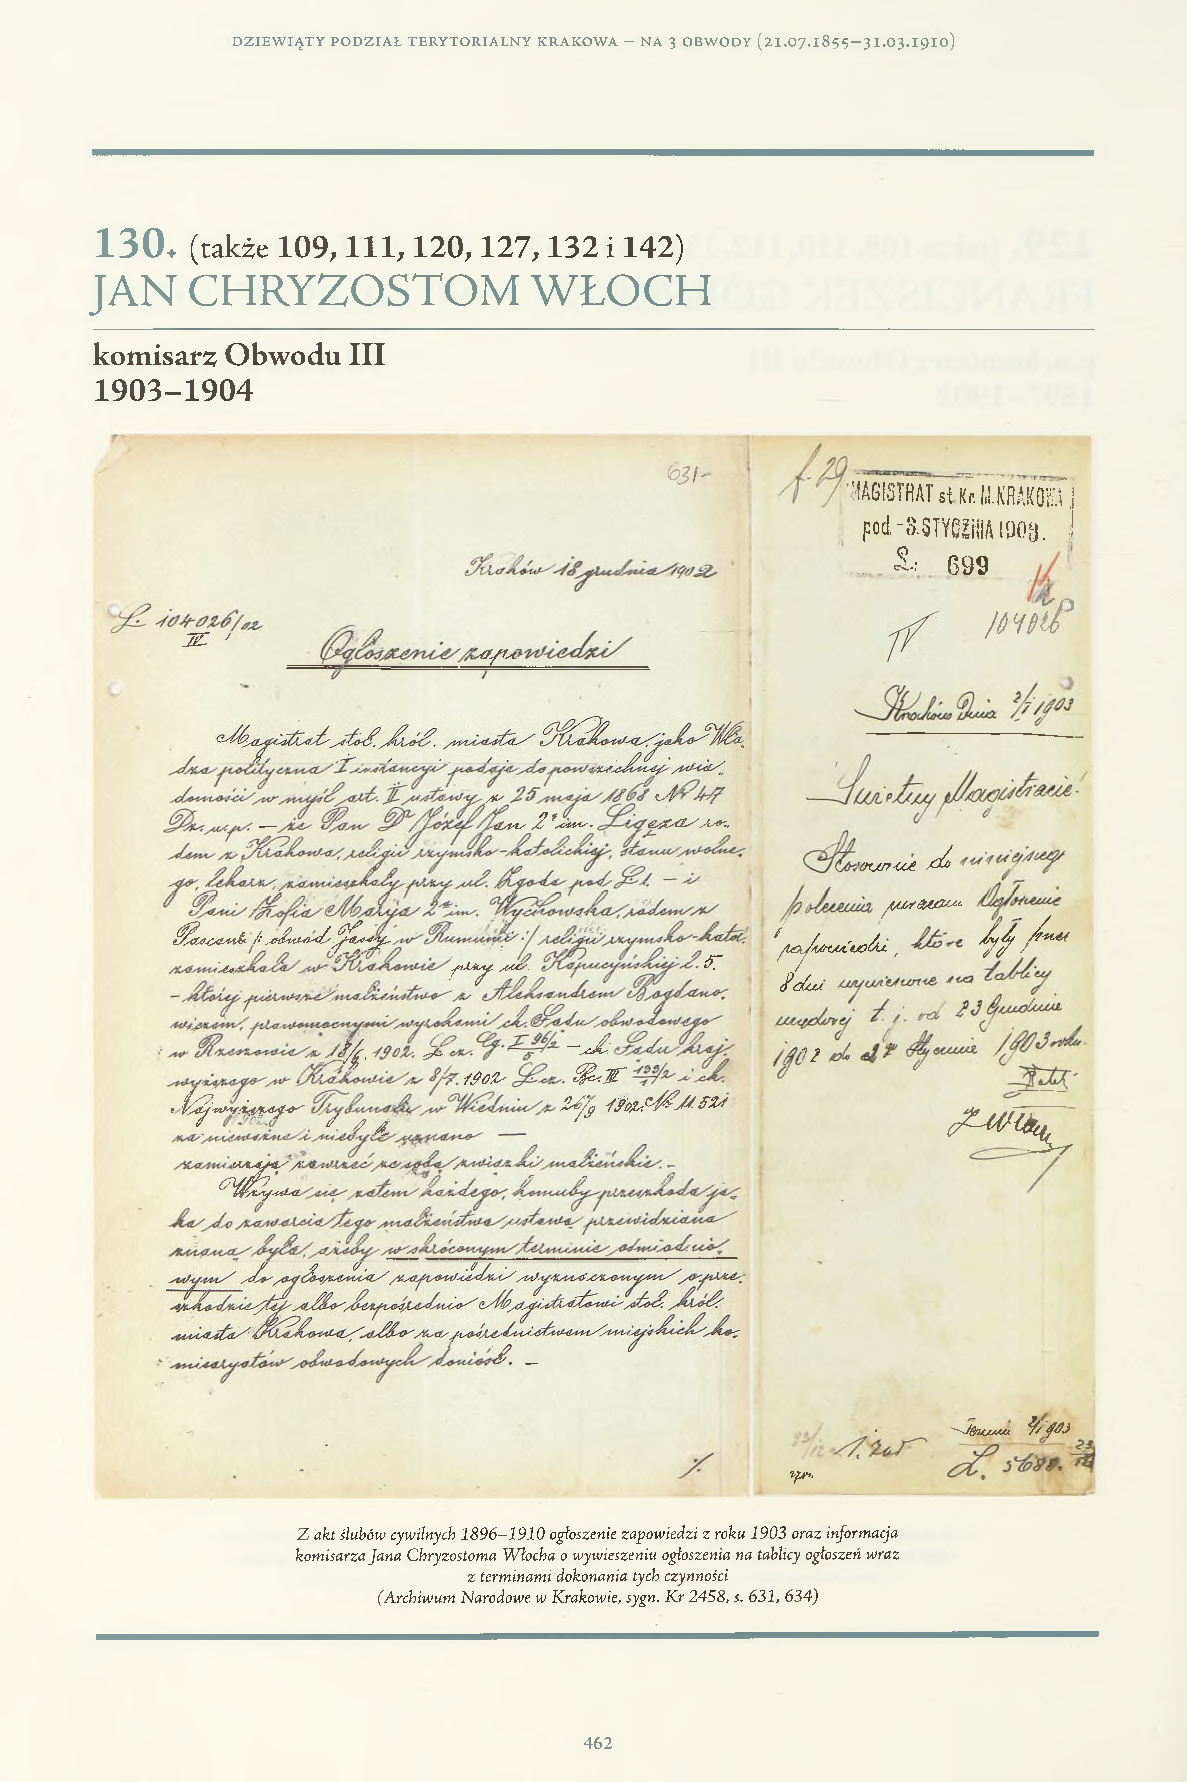 DZIEWIĄTY PODZIAŁ TERYTORIALNY KRAKOWA – NA 3 OBWODY (21.07.1855–31.03.1910)
130. (także 109, 111, 120, 127, 132 i 142)
JAN CHRYZOSTOM WŁOCH
komisarz Obwodu III
1903–1904
631-
Kraków 18 grudnia 1902
L. 104026/02
IV
Ogłoszenie zapowiedzi
Magistrat stoł. król. miasta Krakowa jako Wła-
dza polityczna I instancyi podaje do powszechnej wia-
domości w myśl art. II ustawy z 25 maja 1868 Nr 47
Dz. u. p. — że Pan Dr Józef Jan 2ga im. Ligęza ro-
dem z Krakowa, religii rzymsko-katolickiej, stanu wolne-
go, lekarz, zamieszkały przy ul. Zgoda pod L 1. — i
Pani Zofia Maryja 2ga im. Wychowska, rodem z
Pascani /: obwód Jassy w Rumunii :/ religii rzymsko-katol.
zamieszkała w Krakowie przy ul. Kapucyńskiej l. 5.
- której pierwsze małżeństwo z Aleksandrem Bogdano-
wiczem, prawomocnymi wyrokami ck. Sądu obwodowego
w Rzeszowie z 18/6. 1902. L cz. Cg. I 96/2 5 — ck. Sądu kraj.
wyższego w Krakowie z 8/7. 1902 L cz. Bc. III 133/2 i ck.
Najwyższego Trybunału w Wiedniu z 26/9 1902 Nr 11.521
za nieważne i niebyłe uznano —
zamierzają zawrzeć ze sobą związki małżeńskie. -
Wzywa się zatem każdego, komuby przeszkoda ja-
ka do zawarcia tego małżeństwa ustawą przewidziana
znana była, ażeby w skróconym terminie ośmiodnio-
wym do ogłoszenia zapowiedzi wyznaczonym o prze-
szkodzie tej albo bezpośrednio Magistratowi stoł. król.
miasta Krakowa, albo za pośrednictwem miejskich ko-
misaryatów obwodowych doniósł. —
%.
f. 29
MAGISTRAT st. Kr. M. KRAKOWA
pod. -3. STYCZNIA 1903.
L: 699
104026
IV
Kraków Dnia 2/1 1903
Świetny Magistracie!
Stosownie do niniejszego
polecenia zwracam Ogłoszenie
zapowiedzi, które były przez
8 dni wywieszone na tablicy
urzędowej t. j. od 23 Grudnia
1902 do 2go Stycznia 1903 roku.
JWłoch
1. zał
2/1 903
L. 5688. 23/12
Z akt ślubów cywilnych 1896–1910 ogłoszenie zapowiedzi z roku 1903 oraz informacja
komisarza Jana Chryzostoma Włocha o wywieszeniu ogłoszenia na tablicy ogłoszeń wraz
z terminami dokonania tych czynności
(Archiwum Narodowe w Krakowie, sygn. Kr 2458, s. 631, 634)
462